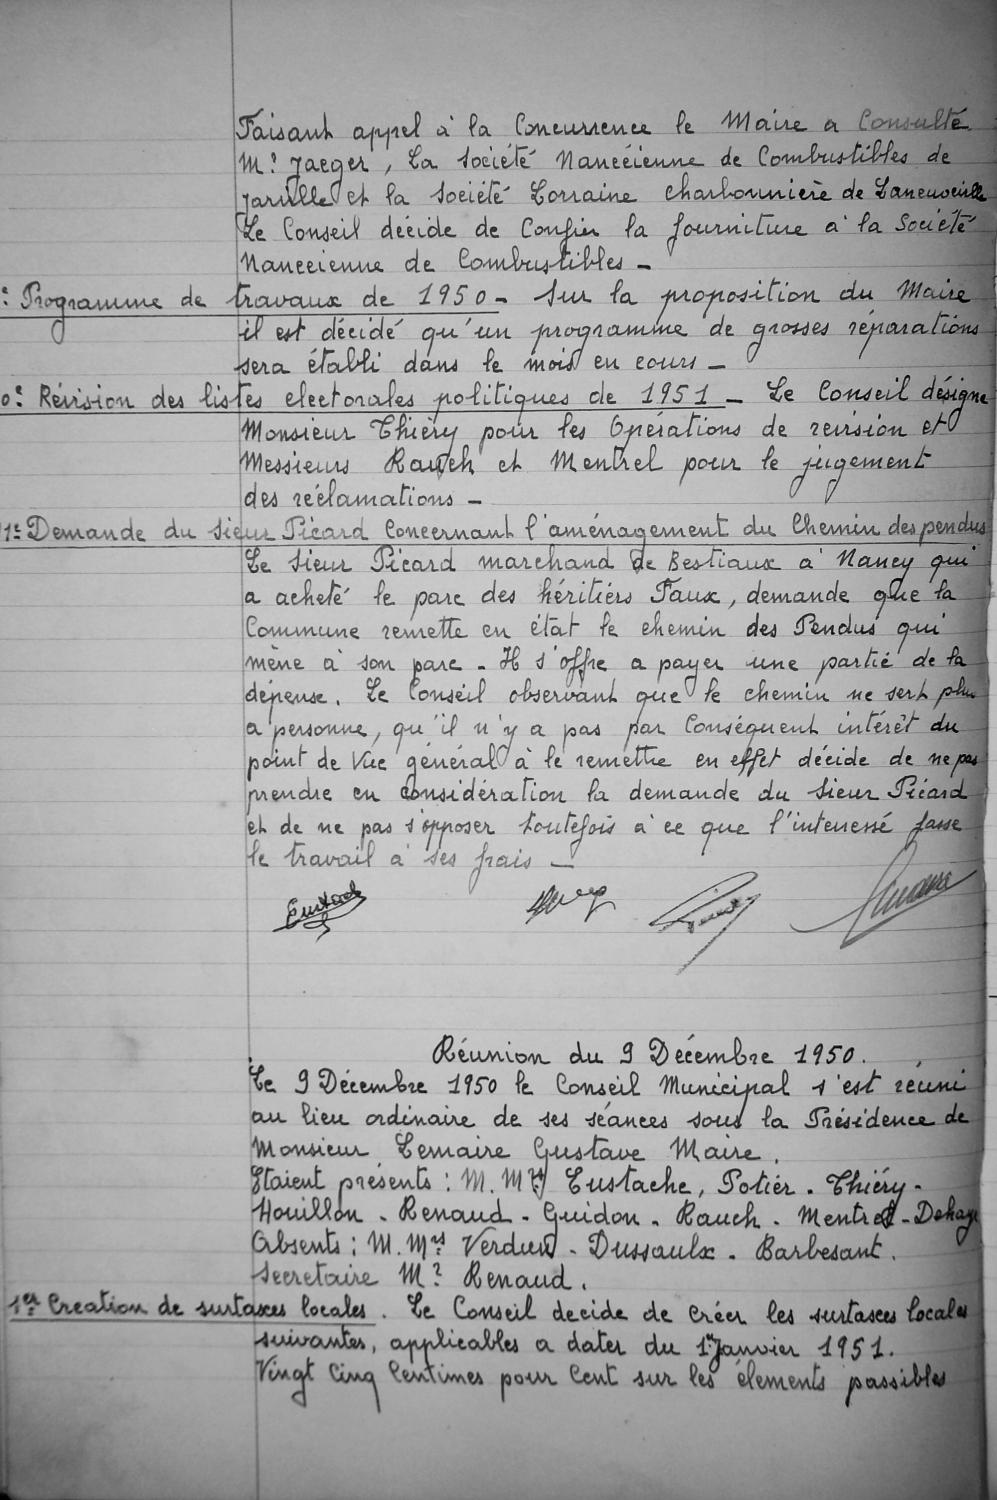 Faisant appel à la Concurrence le Maire a Consulté
Mr Jaeger, La Société Nancéienne de Combustibles de
Jarville et la Société Lorraine charbonnière de Laneuveville
Le Conseil décide de Confier la fourniture à la Société
Nanceienne de Combustibles -
: Programme de travaux de 1950 - Sur la proposition du Maire
il est décidé qu'un programme de grosses réparations
sera établi dans le mois en cours -
0: Révision des listes electorales politiques de 1951 - Le Conseil désigne
Monsieur Thiéry pour les Opérations de révision et
Messieurs Rauch et Mentrel pour le jugement
des réclamations -
11: Demande du Sieur Picard Concernant l'aménagement du Chemin des pendus
Le Sieur Picard marchand de Bestiaux à Nancy qui
a acheté le parc des héritiers Faux, demande que la
Commune remette en état le chemin des Pendus qui
mène à son parc - Il s'offre a payer une partie de la
dépense. Le Conseil observant que le chemin ne sert plus
a personne, qu'il n'y a pas par Conséquent intérêt du
point de Vue général à le remettre en effet décide de ne pas
prendre en considération la demande du Sieur Picard
et de ne pas s'opposer toutefois à ce que l'interessé fasse
le travail à ses frais -
Eustache
Réunion du 9 Décembre 1950.
Le 9 Décembre 1950 le Conseil Municipal s'est réuni
au lieu ordinaire de ses séances sous la Présidence de
Monsieur Lemaire Gustave Maire.
Etaient présents : M.Mrs Eustache, Potier - Thiéry -
Houillon - Renaud - Guidon - Rauch - Mentrel - Dehaye
Absents : M.Mrs Verdun - Dussaulx - Barbesant.
Secretaire Mr Renaud.
1er Creation de surtaxes locales. Le Conseil decide de créer les surtaxes locales
suivantes, applicables a dater du 1er Janvier 1951.
Vingt Cinq Centimes pour Cent sur les élements passibles